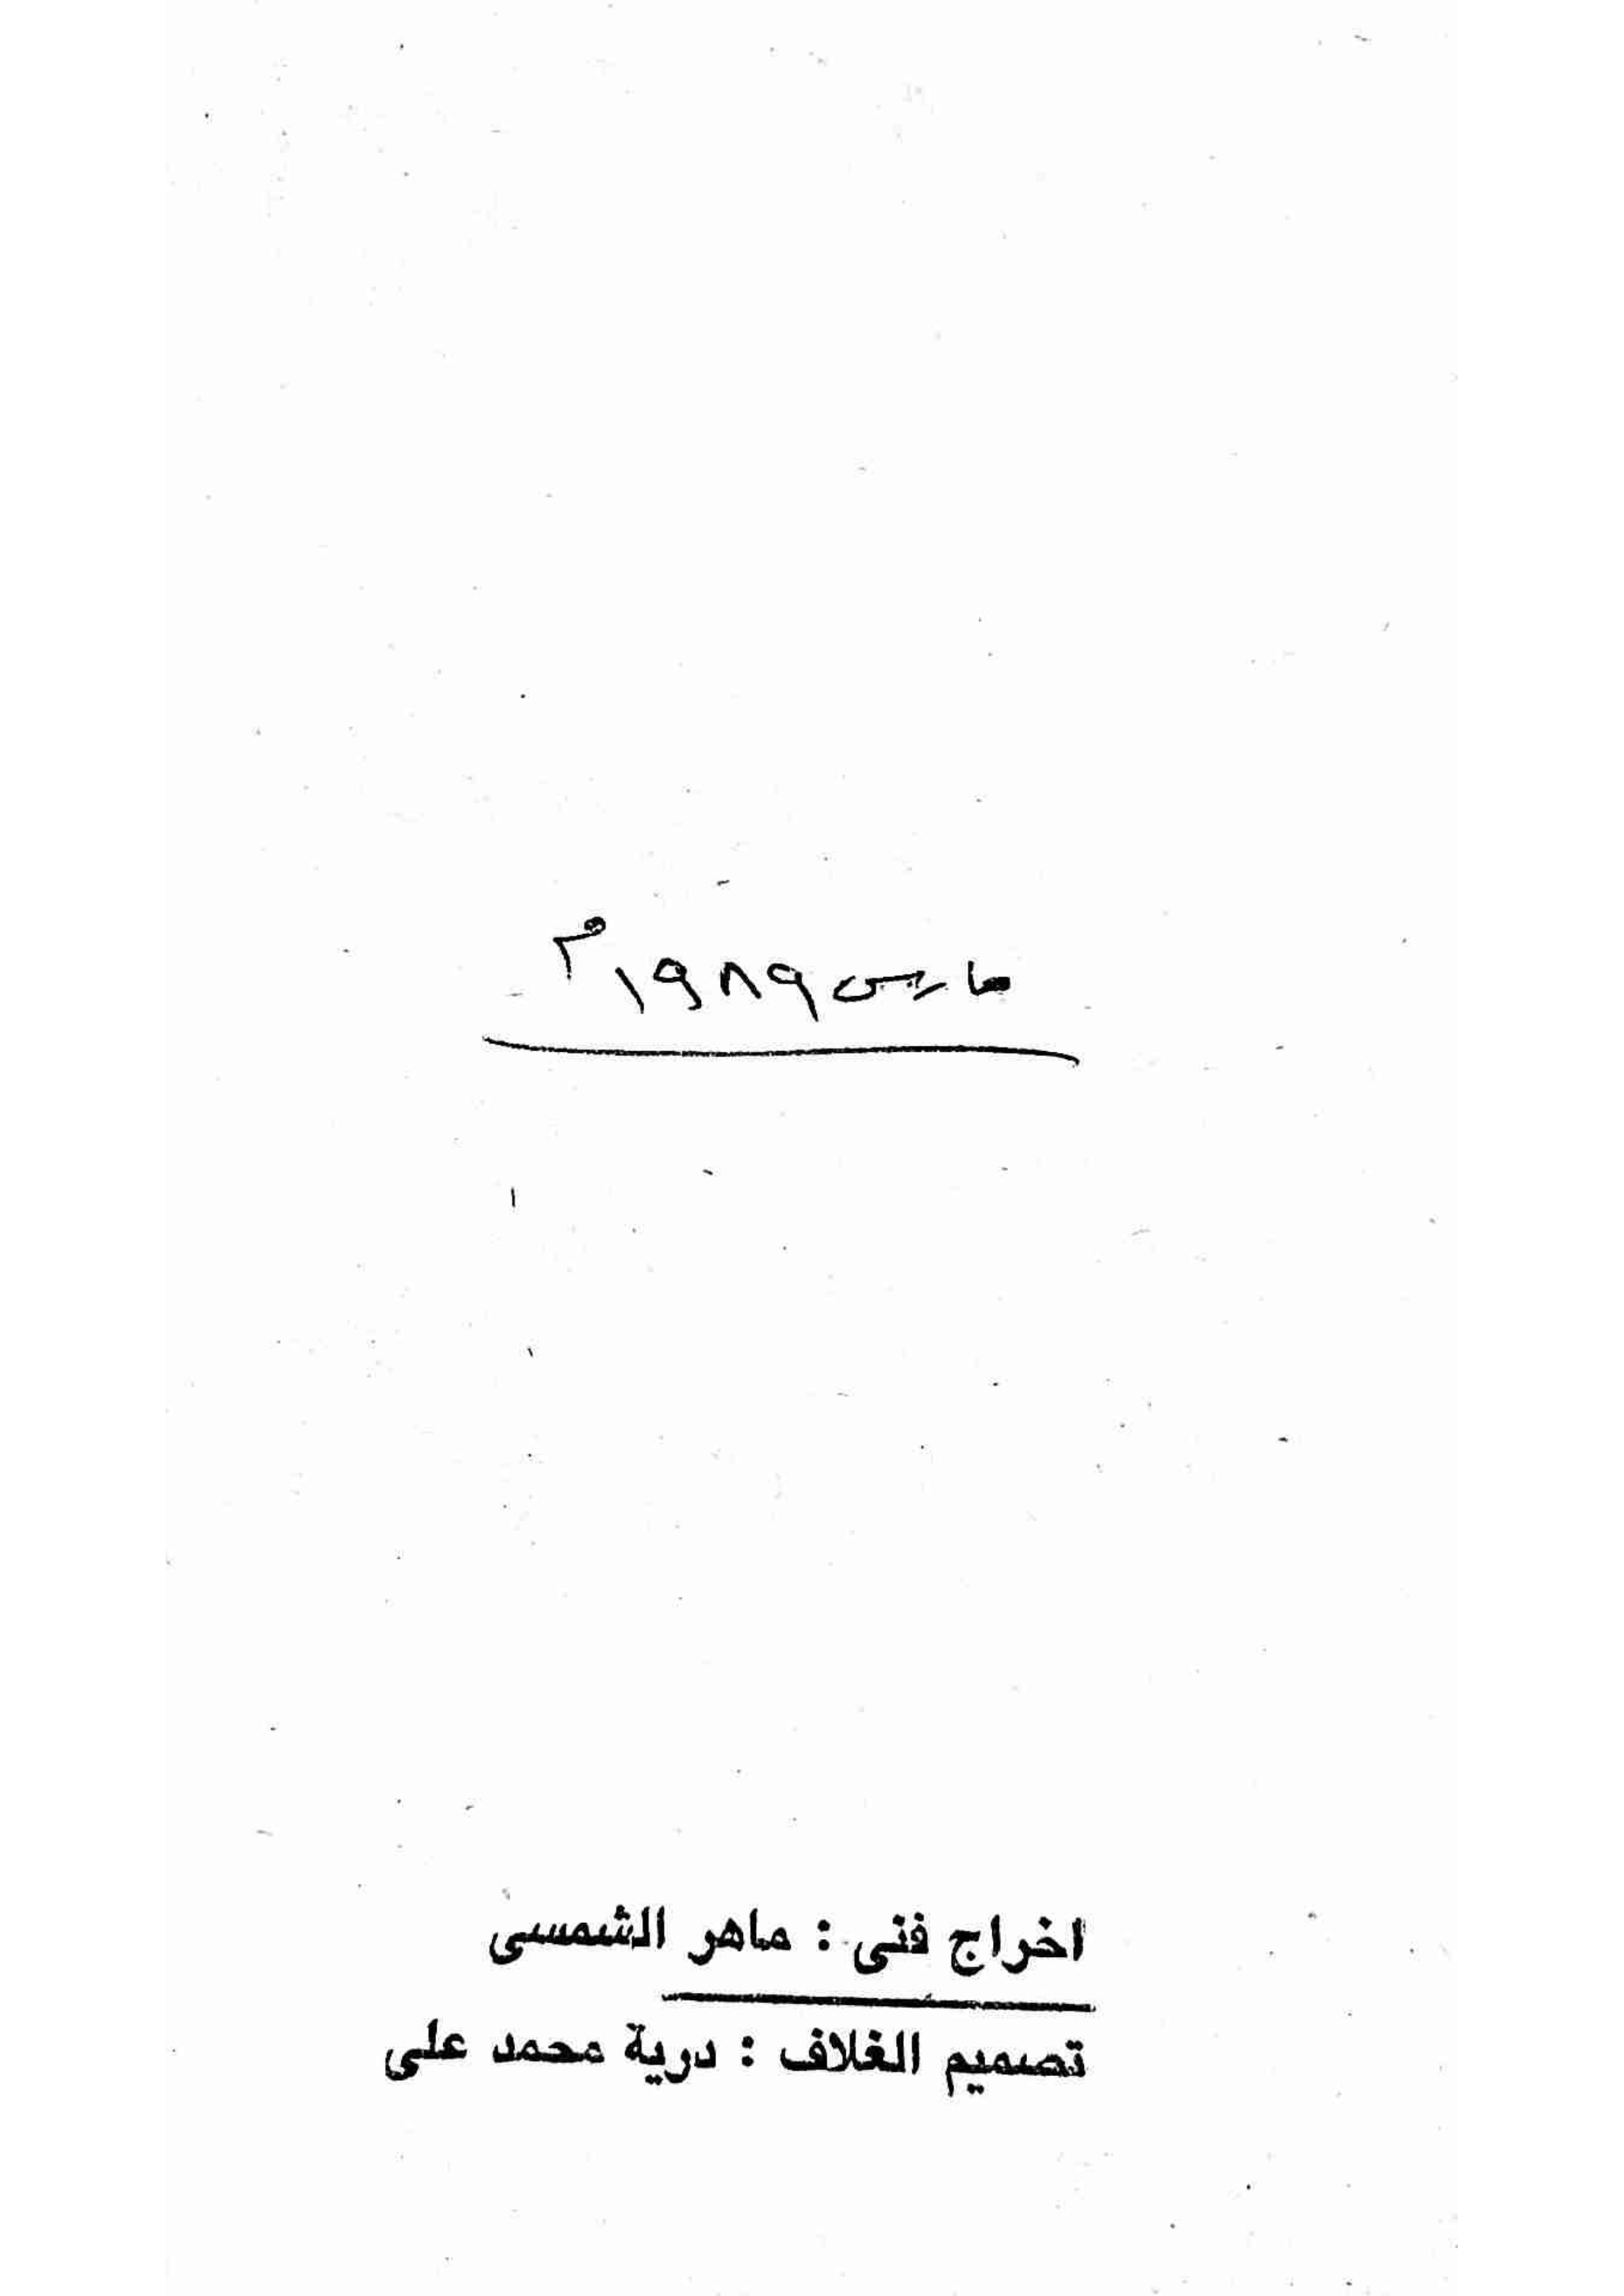 مارس ١٩٨٩م
اخراج فنى : ماهر الشمسى
تصميم الغلاف : درية محمد على